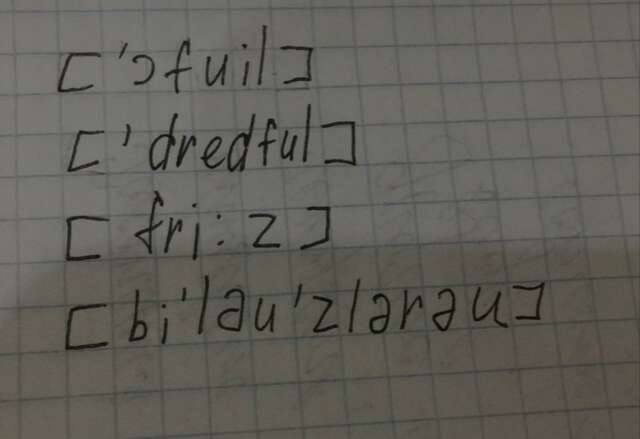 ['ɔfuil]
['dredful]
[fri:z]
[bi'ləu'zlərəu]